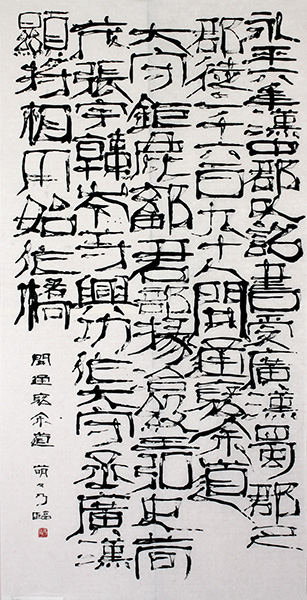 永平六年漢中郡以詔書受廣漢蜀郡巴
郡徒二千六百九十人開通褒余道
大守鉅鹿鄐君部掾冶級王弘史荀
茂張宇韓岑等興功作大守丞廣漢
顯將相用始作橋
開通褒余道